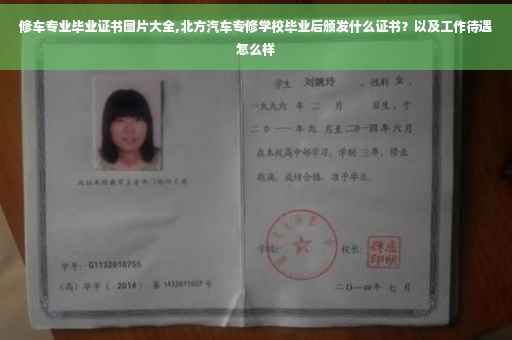 修车专业毕业证书图片大全,北方汽车专修学校毕业后颁发什么证书？以及工作待遇
怎么样
学生 刘婉玲 ，性别 女 ，
一九九六 年 二 月 日生，于
二〇一一年九 月至二〇一四年 六 月
在本校高中部学习，学制 三年，修业
期满，成绩合格，准予毕业。
学校： 校长：
学号：G1132010755
（高）毕字（ 2014 ）第 1432011027 号
二〇一四年 七 月